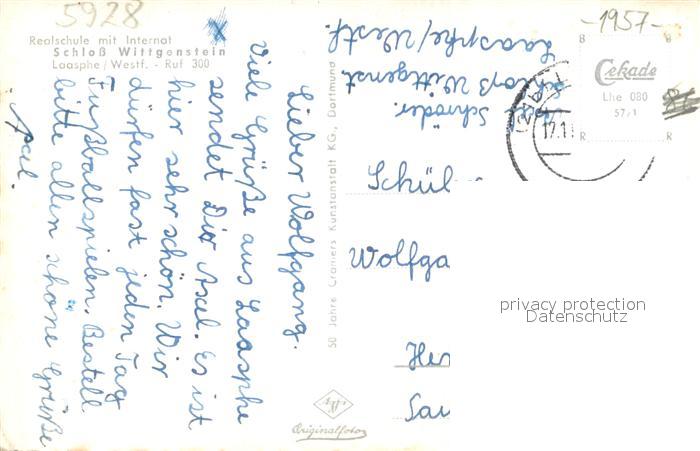 5928
Realschule mit Internat
Schloß Wittgenstein
Laasphe/Westf. - Ruf 300
Lieber Wolfgang.
Viele Grüße aus Laasphe
sendet Dir Axel. Es ist
hier sehr schön. Wir
dürfen fast jeden Tag
Fußballspielen. Bestell
bitte allen schöne Grüße
Axel.
50 Jahre Cramers Kunstanstalt KG., Dortmund
Schröder.
Schloß Wittgenst.
Laasphe/Westf.
-1957-
B B
Cekade
Lhe 080
57/1
R R
17.1
Schül
Wolfga
Her
Sau
privacy protection
Datenschutz
Agfa
Originalfoto